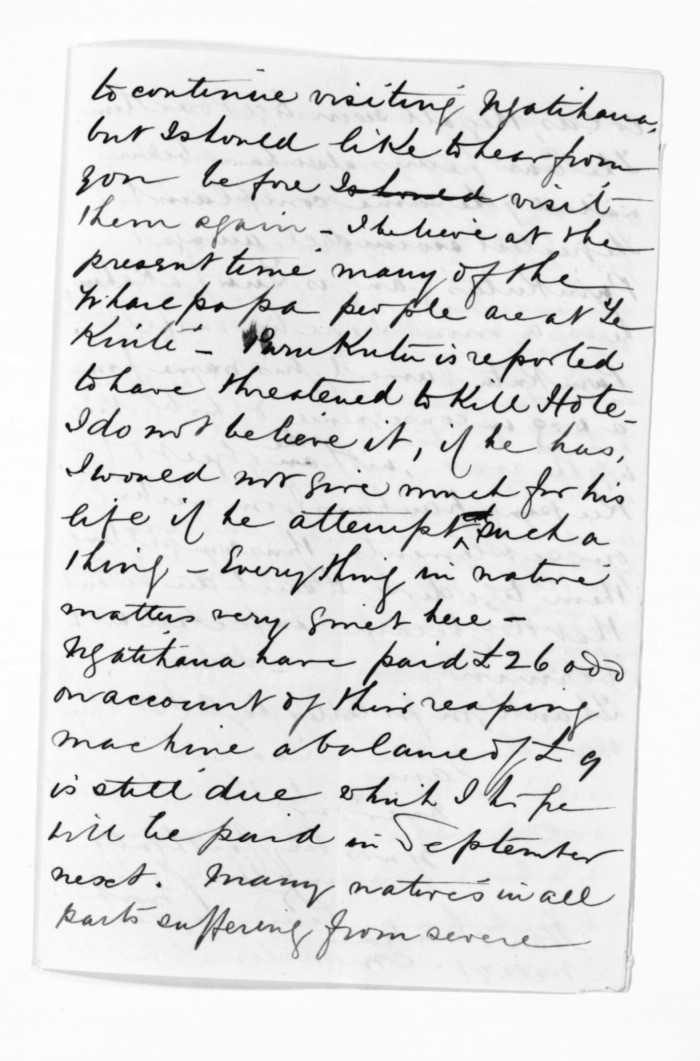 to continue visiting Ngatihaua,
but I should like to hear from
you before I should visit
them again - I believe at the
present time many of the
Wharepapa people are at Te
Kuiti - Purukutu is reported
to have threatened to kill Hote
I do not believe it, if he has,
I would not give much for his
life if he attempt at such a
thing - Everything in native
matters very quiet here -
Ngatihaua have paid £26 odd
on account of their reaping
machine a balance of £9
is still due which I hope
will be paid in September
next. Many natives in all
parts suffering from severe